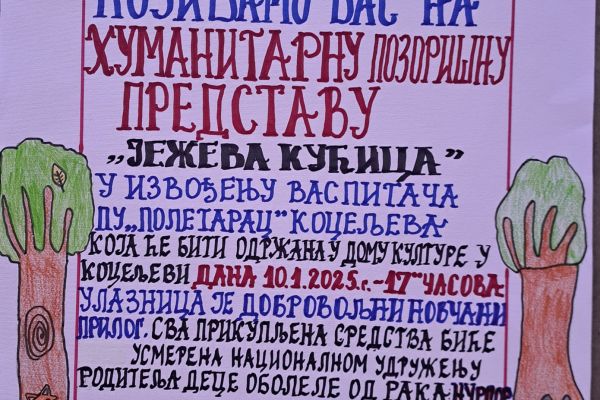 ПОЗИВАМО ВАС НА
ХУМАНИТАРНУ ПОЗОРИШНУ
ПРЕДСТАВУ
„ЈЕЖЕВА КУЋИЦА”
У ИЗВОЂЕЊУ ВАСПИТАЧА
ПУ„ПОЛЕТАРАЦ” КОЦЕЉЕВА
КОЈА ЋЕ БИТИ ОДРЖАНА У ДОМУ КУЛТУРЕ У
КОЦЕЉЕВИ ДАНА 10.1.2025.г.-17°° ЧАСОВА
УЛАЗНИЦА ЈЕ ДОБРОВОЉНИ НОВЧАНИ
ПРИЛОГ. СВА ПРИКУПЉЕНА СРЕДСТВА БИЋЕ
УСМЕРЕНА НАЦИОНАЛНОМ УДРУЖЕЊУ
РОДИТЕЉА ДЕЦЕ ОБОЛЕЛЕ ОД РАКА НУРДОР